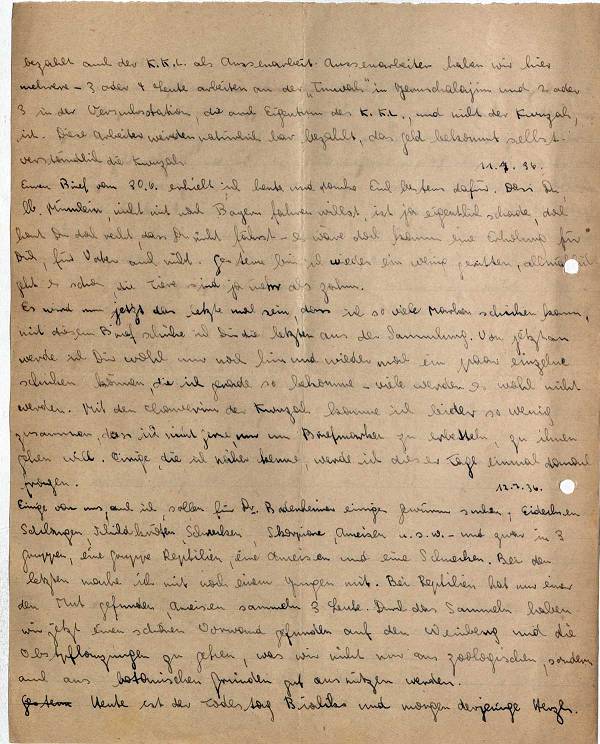 bezahlt auch der K.K.L. als Aussenarbeit. Aussenarbeiten haben wir hier
mehrere – 3 oder 4 Leute arbeiten an der „Tnuvah" in Jeruschalajim und 2 oder
3 in der Versuchsstation, die auch Eigentum des K.K.L., und nicht der Kwuzah,
ist. Diese Arbeiter werden natürlich bar bezahlt, das Geld bekommt selbst-
verständlich die Kwuzah.
11.7.36.
Euren Brief vom 30.6. erhielt ich heute und danke Euch bestens dafür. Dass Du,
lb. Mutterlein, nicht mit nach Bayern fahren willst, ist ja eigentlich schade, doch
hast Du doch recht, dass Du nicht fährst – es wäre doch kaum eine Erholung für
Dich, für Vater auch nicht. Gestern bin ich wieder ein wenig geritten, allmählich
geht es schon, die Tiere sind ja mehr als zahm.
Es wird nun jetzt das letzte mal sein, dass ich so viele Marken schicken kann,
mit diesem Brief schicke ich Dir die letzten aus der Sammlung. Von jetzt an
werde ich Dir wohl nur noch hin und wieder mal ein paar einzelne
schicken können, die ich gerade so bekomme – viele werden es wohl nicht
werden. Mit den Chawerim der Kwuzah komme ich leider so wenig
zusammen, dass ich nicht gerne, nur um Briefmarken zu erbetteln, zu ihnen
gehen will. Einige, die ich näher kenne, werde ich dieser Tage einmal danach
fragen.
12.7.36.
Einige von uns, auch ich, sollen für Dr. Bodenheimer einiges suchen, Eidechsen
Schlangen, Schildkröten, Schnecken, Skorpione, Ameisen u.s.w. – und zwar in 3
Gruppen, eine Gruppe Reptilien, eine Ameisen und eine Schnecken. Bei den
letzten mache ich mit noch einem Jungen mit. Bei Reptilien hat nur einer
den Mut gefunden, Ameisen sammeln 3 Leute. Durch das Sammeln haben
wir jetzt einen schönen Vorwand gefunden auf den Weinberg und die
Obstpflanzungen zu gehen, was wir nicht nur aus zoologischen, sondern
auch aus botanischen Gründen gut ausnützen werden.
Gestern Heute ist der Todestag Bialiks und morgen derjenige Herzls.